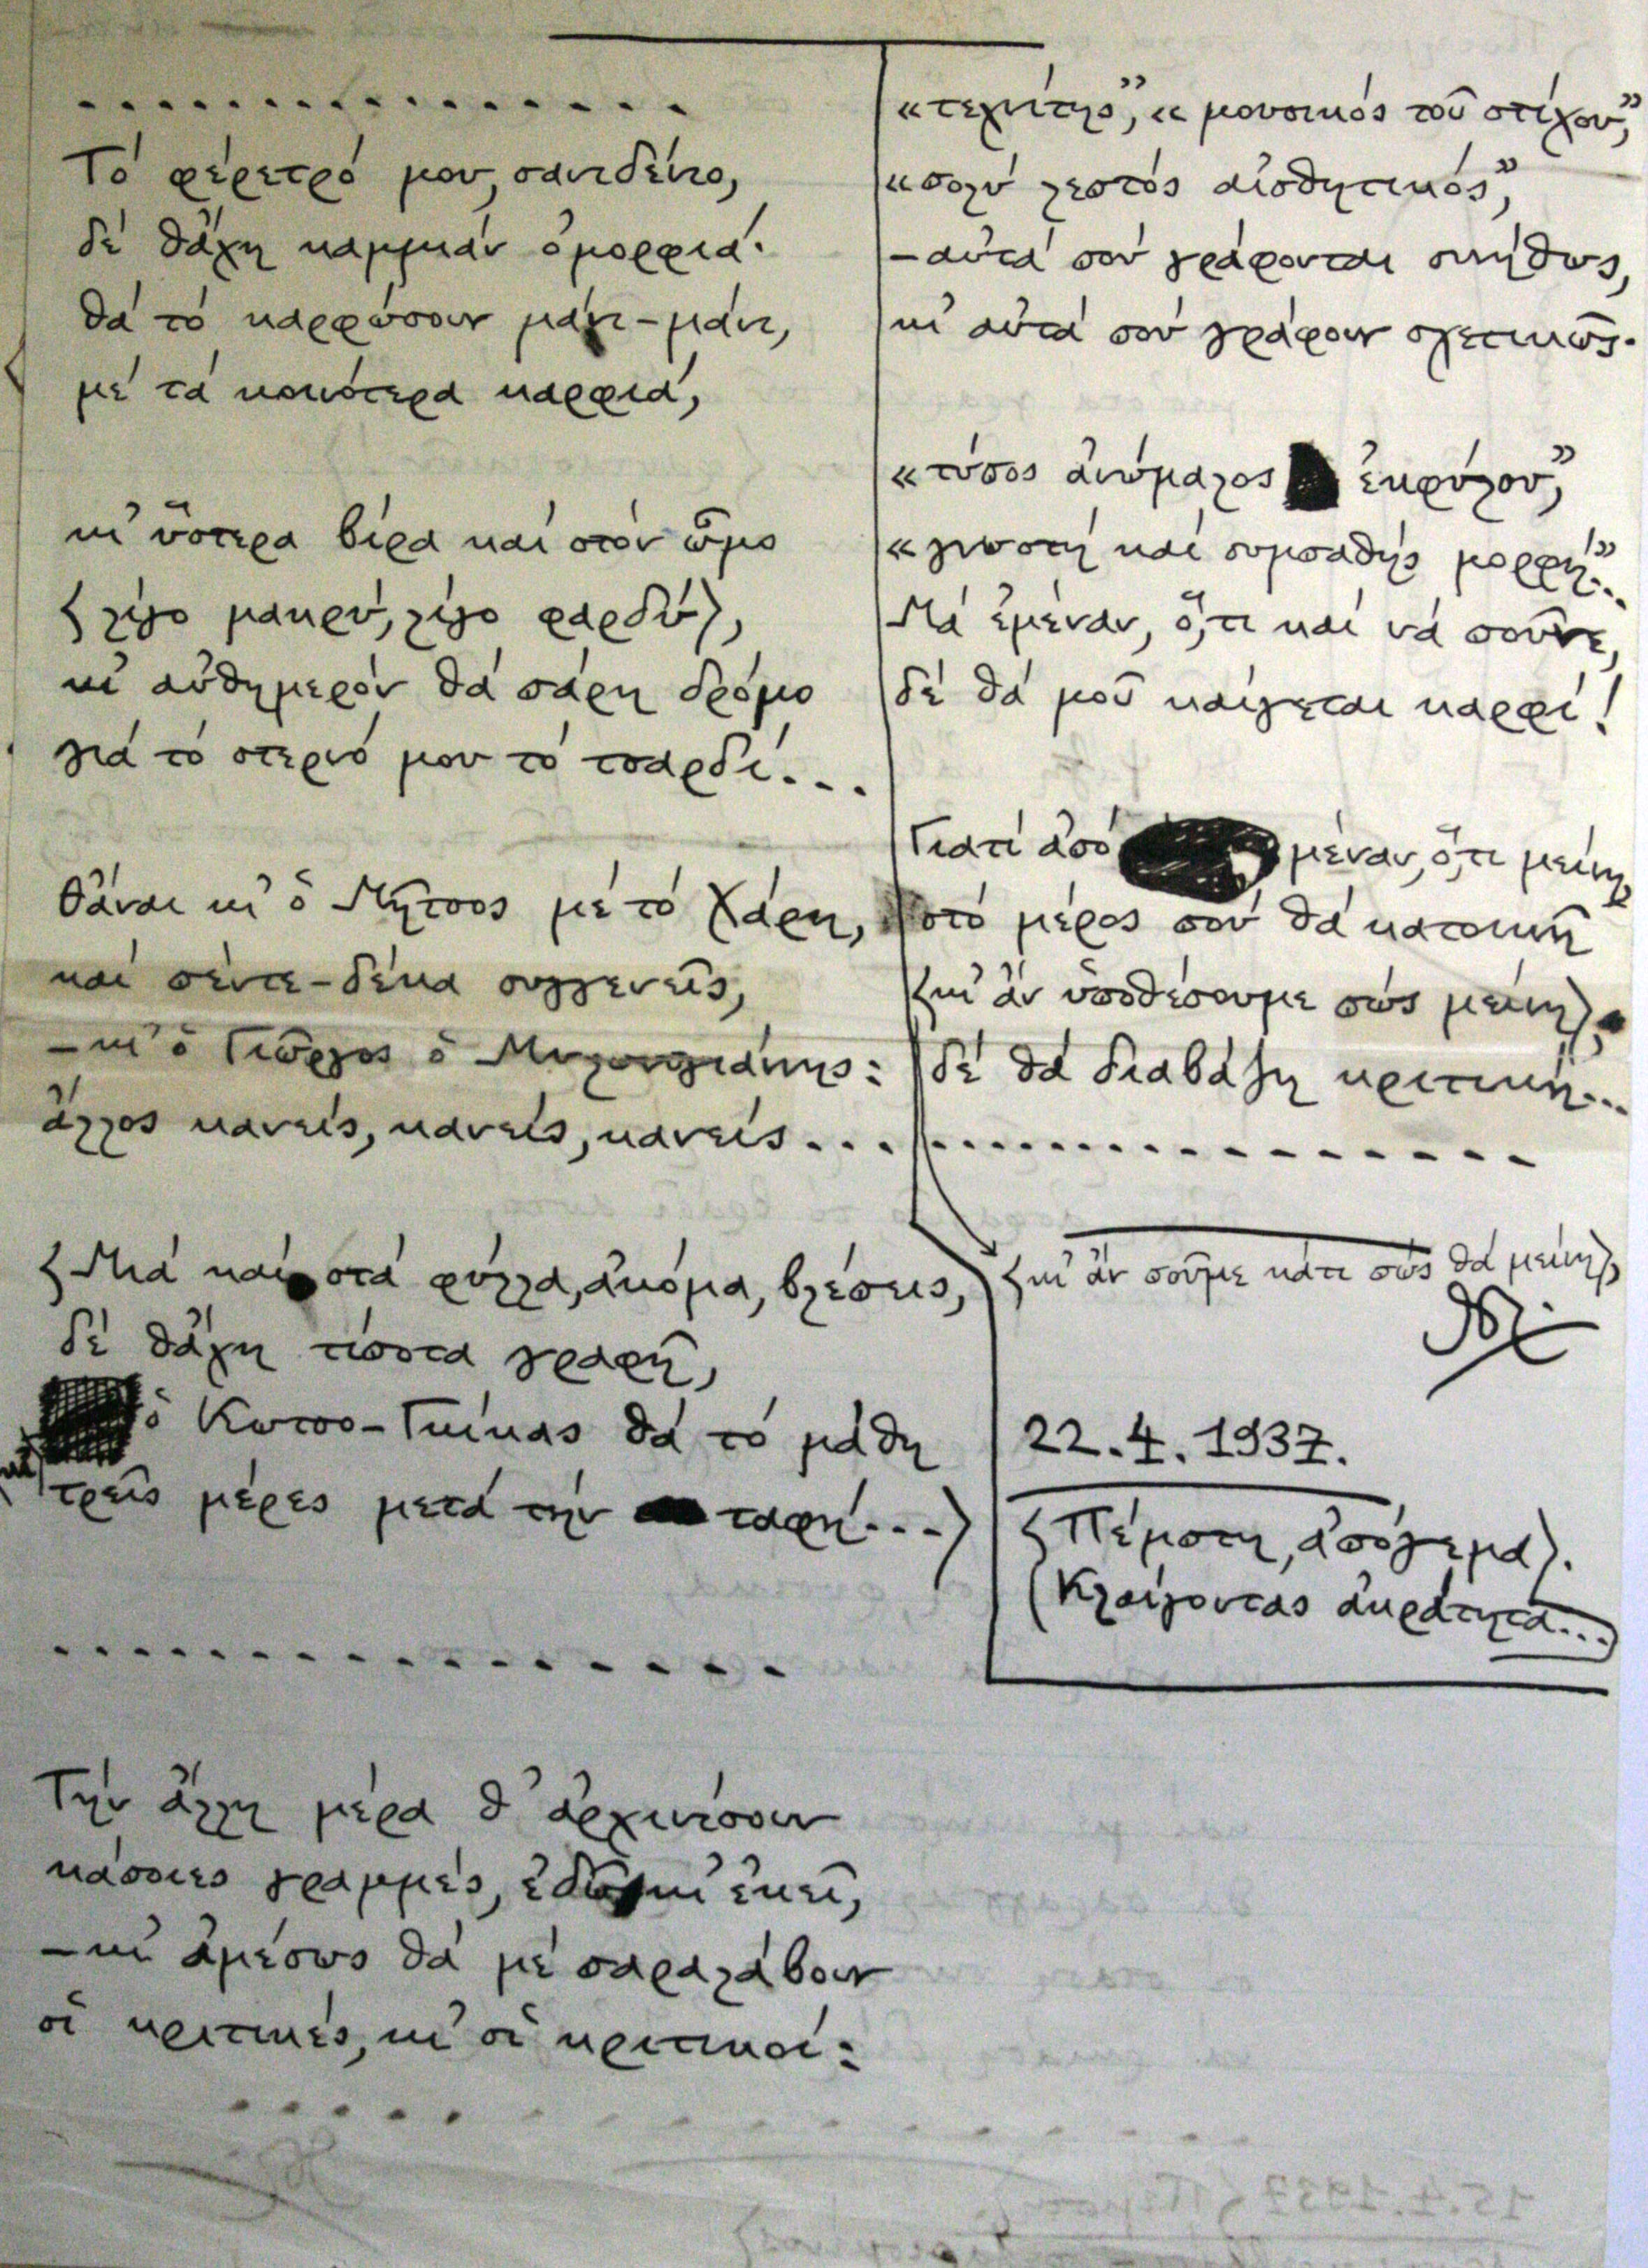 . . . . . . . . . . . . . . . .
Τὸ φέρετρό μου, σανιδένιο,
δὲ θἄχῃ καμμιὰν ὀμορφιά·
θὰ τὸ καρφώσουν μάνι-μάνι,
μὲ τὰ κοινότερα καρφιά,
κι᾽ ὕστερα βίρα καὶ στὸν ὦμο
(λίγο μακρύ, λίγο φαρδύ),
κι᾽ αὐθημερὸν θὰ πάρῃ δρόμο
γιὰ τὸ στερνό μου τὸ τσαρδί...
Θἆναι κι᾽ ὁ Μῆτσος μὲ τὸ Χάρη,
καὶ πέντε-δέκα συγγενεῖς,
– κι᾽ ὁ Γιῶργος ὁ Μυλωνογιάννης:
ἄλλος κανείς, κανείς, κανείς...
(Μιὰ καὶ στὰ φύλλα, ἀκόμα, βλέπεις,
δὲ θἄχῃ τίποτα γραφῆ,
ὁ Κωτσο-Τσίκας θὰ τὸ μάθῃ
τρεῖς μέρες μετὰ τὴν ταφή...)
. . . . . . . . . . . . . . . .
Τὴν ἄλλη μέρα θ᾽ ἀρχινίσουν
κάποιες γραμμές, ἐδῶ κι᾽ ἐκεῖ,
– κι᾽ ἀμέσως θὰ μὲ παραλάβουν
οἱ κριτικές, κι᾽ οἱ κριτικοί:
. . . . .
«τεχνίτης», «μουσικὸς τοῦ στίχου»,
«πολὺ λεπτὸς αἰσθητικός»,
– αὐτὰ ποὺ γράφονται συνήθως,
κι᾽ αὐτὰ ποὺ γράφουν σχετικῶς·
«τύπος ἀνώμαλος ἐκφύλου»,
«γνωστὴ καὶ συμπαθὴς μορφή»...
Μὰ ἐμέναν, ὅ,τι καὶ νὰ ποῦνε,
δὲ θὰ μοῦ καίγεται καρφί!
Γιατὶ ἀπὸ μέναν, ὅ,τι μείνῃ,
στὸ μέρος ποὺ θὰ κατοικῇ
(κι᾽ ἂν ὑποθέσουμε πὼς μείνῃ),
δὲ θὰ διαβάζῃ κριτική...
. . . . . . . . . . . . . . . .
(κι᾽ ἂν ποῦμε κάτι πὼς θὰ μείνῃ),
22.4.1937.
(Πέμπτη, ἀπόγεμα).
(Κλαίγοντας ἀκράτητα...)